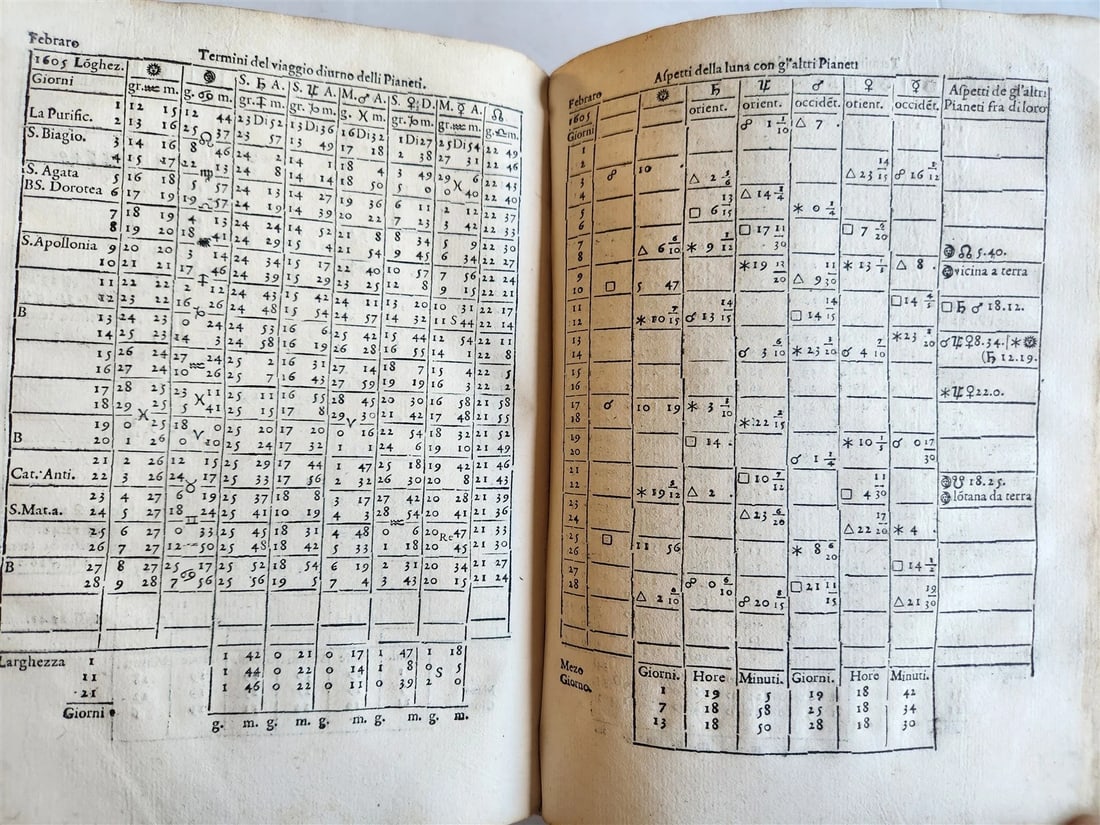 Febraro
Termini del viaggio diurno delli Pianeti.
1605 Lõghez. ☉ ☽ S. ♄ A. S. ♃ A. M. ♂ A. S. ♀ D. M. ☿ A. ☊
Giorni gr. ♒ m. g. ♋ m. gr. ♐ m. gr. ♑ m. g. ♓ m. gr. ♑ m. gr. ♒ m. g. ♎ m.
1 12 15 12 44 23 Di52 13 Di36 16 Di32 1 Di27 25 Di54 22 49
La Purific. 2 13 16 25 ♌ 37 23 57 13 49 17 18 2 38 27 31 22 46
S. Biagio. 3 14 16 8 46 24 2 14 1 18 4 3 49 29 6 22 43
4 15 17 22 ♍ 24 8 14 14 18 50 5 0 0 ♓ 40 22 40
S. Agata 5 16 18 5 57 24 13 14 27 19 36 6 11 2 12 22 37
BS. Dorotea 6 17 19 19 ♎ 57 24 19 14 39 20 22 7 23 3 42 22 33
7 18 19 4 13 24 24 14 52 21 8 8 34 5 9 22 30
8 19 20 18 41 24 29 15 4 21 54 9 45 6 34 22 27
S. Apollonia 9 20 20 3 14 24 34 15 17 22 40 10 57 7 56 22 24
10 21 21 17 ♐ 46 24 39 15 29 23 25 12 8 9 15 22 21
11 22 22 2 12 24 43 15 42 24 11 13 20 10 31 22 17
12 23 22 16 ♑ 26 24 48 15 54 24 57 14 32 11 S 44 22 14
B 13 24 23 0 24 24 53 16 6 25 42 15 44 12 54 22 11
14 25 23 14 3 24 58 16 19 26 28 16 55 14 1 22 8
15 26 24 27 ♒ 24 25 2 16 31 27 14 18 7 15 4 22 5
16 27 24 10 26 25 7 16 43 27 59 19 19 16 3 22 2
17 28 25 23 ♓ 11 25 11 16 55 28 45 20 30 16 58 21 58
18 29 ♓ 25 5 41 25 15 17 8 29 ♈ 30 21 42 17 48 21 55
19 0 25 18 ♈ 0 25 20 17 20 0 16 22 54 18 32 21 52
B 20 1 26 0 10 25 24 17 32 1 1 24 6 19 10 21 49
21 2 26 12 15 25 29 17 44 1 47 25 18 19 42 21 46
Cat. Anti. 22 3 26 24 ♉ 17 25 33 17 56 2 32 26 30 20 8 21 43
23 4 27 6 19 25 37 18 8 3 17 27 42 20 28 21 39
S. Mat.a. 24 5 27 18 ♊ 24 25 41 10 19 4 3 28 ♒ 54 20 41 21 36
25 6 27 0 35 25 45 18 31 4 48 0 6 20 Re 47 21 33
26 7 27 12 50 25 48 18 42 5 33 1 18 20 45 21 30
B 27 8 27 25 ♋ 17 25 52 18 54 6 19 2 31 20 34 21 27
28 9 28 7 56 25 56 19 5 7 4 3 43 20 15 21 24
Larghezza 1 1 42 0 21 0 17 1 47 1 18
11 1 44 0 22 0 14 1 8 0 S 5
21 1 46 0 22 0 11 0 39 2 0
Giorni
g. m. g. m. g. m. g. m. g. m.
Aspetti della luna con gl'altri Pianeti
Febraro ☉ ♄ ♃ ♂ ♀ ☿ Aspetti de gl'altri
1605 orient. orient. occidẽt. orient. occidẽt. Pianeti fra di loro
Giorni
1 ☍ 1 1/10 △ 7
2
3 ☍ 10 △ 2 5/6 △ 23 14/15 ☍ 16 5/12
4 △ 14 3/4
5 □ 6 13/15 ✶ 0 1/4
6
7 △ 6 6/10 ✶ 9 1/12 □ 17 11/30 □ 7 7/20 ☽ ☊ 5.40.
8 ☽ vicina a terra
9 ✶ 19 13/20 △ 9 11/30 ✶ 13 1/3 △ 8
10 □ 5 47
11 ✶ 10 7/15 ☌ 13 14/15 □ 14 14/15 □ 14 4/5 □ ♄ ♂ 18.12.
12
13 ☌ 3 1/10 ✶ 23 1/20 ☌ 4 7/10 ✶ 23 1/20 ☌ ♃ ♀ 8.34. ✶ ☉
14 ♄ 12.19.
15
16 ✶ ♃ ♀ 22.0.
17 ☌ 10 19 ✶ 3 3/10
18 ✶ 22 2/15
19 □ 14 ✶ 10 1/3 ☌ 0 17/30
20 ☌ 1 1/4
21 □ 10 7/12 ☽ ☋ 18.25.
22 ✶ 19 5/12 △ 2 □ 4 11/30 ☽ lõtana da terra
23 △ 23 6/20
24 △ 22 17/20 ✶ 4
25 □ 11 56 ✶ 8 6/20
26
27 □ 14 1/2
28 △ 2 8/10 ☍ 0 6/10 ☍ 20 8/15 □ 21 11/15 △ 21 19/30
Mezo Giorni. Hore Minuti. Giorni. Hore Minuti.
Giorno. 1 19 5 19 18 42
7 18 58 25 18 34
13 18 50 28 18 30